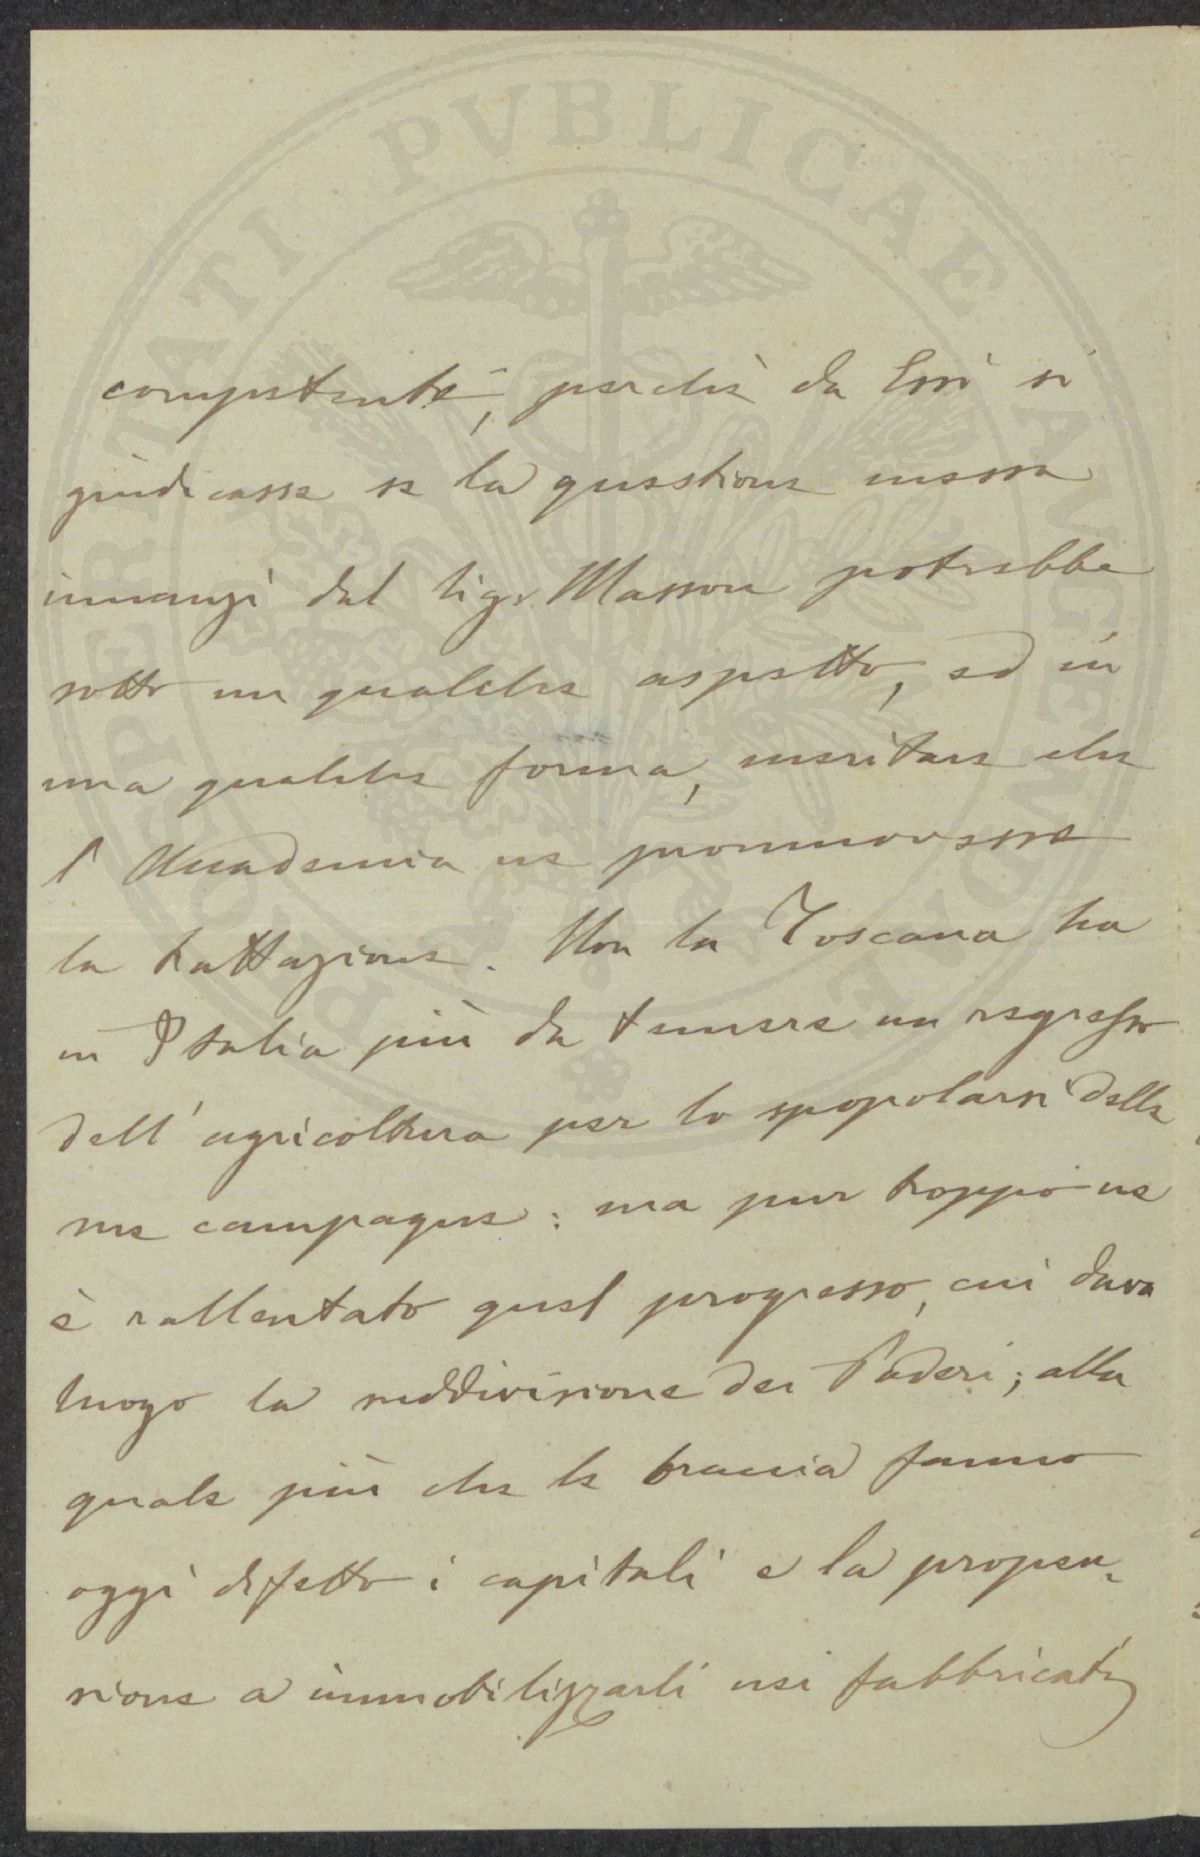 PROSPERITATI PVBLICAE AVGENDAE
competente, perchè da Essi si
giudicasse se la questione messa
innanzi dal Sigr. Masson potrebbe
sotto un qualche aspetto, ed in
una qualche forma, meritare che
l'Accademia ne promuovesse
la trattazione. Non la Toscana ha
in Italia più da temere un regresso
dell'agricoltura per lo spopolarsi delle
sue campagne: ma pur troppo ne
è rallentato quel progresso, cui dava
luogo la suddivisione dei Poderi; alla
quale più che le braccia fanno
oggi difetto i capitali e la propen-
sione a immobilizzarli nei fabbricati